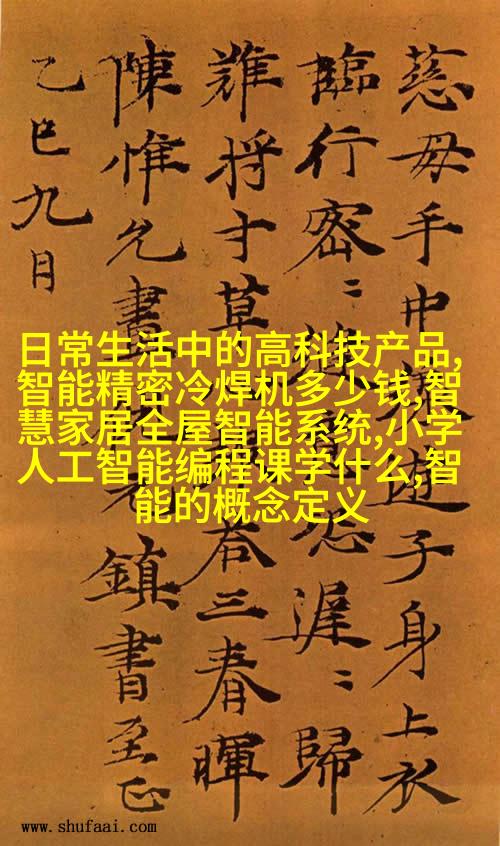 慈母手中遊子身上衣
臨行密〻恐遲〻歸
難将寸草荅三春暉
陳惟允書鎮書至正
乙巳九月
日常生活中的高科技产品,
智能精密冷焊机多少钱,智
慧家居全屋智能系统,小学
人工智能编程课学什么,智
能的概念定义
www.shufaai.com